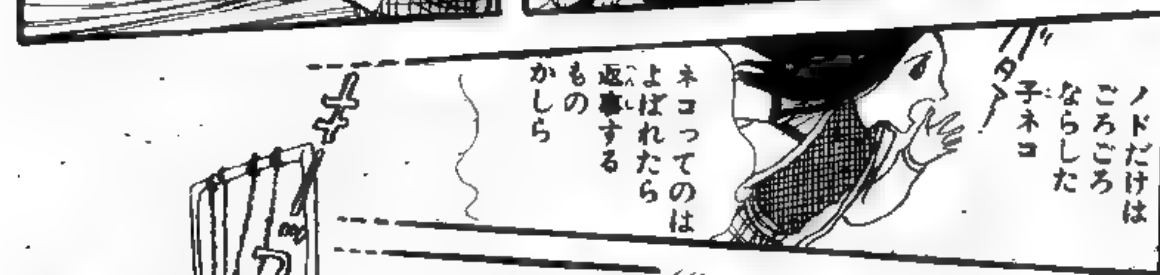 ノドだけは
ごろごろ
ならした
子ネコ
ネコってのは
よばれたら
返事する
もの
かしら